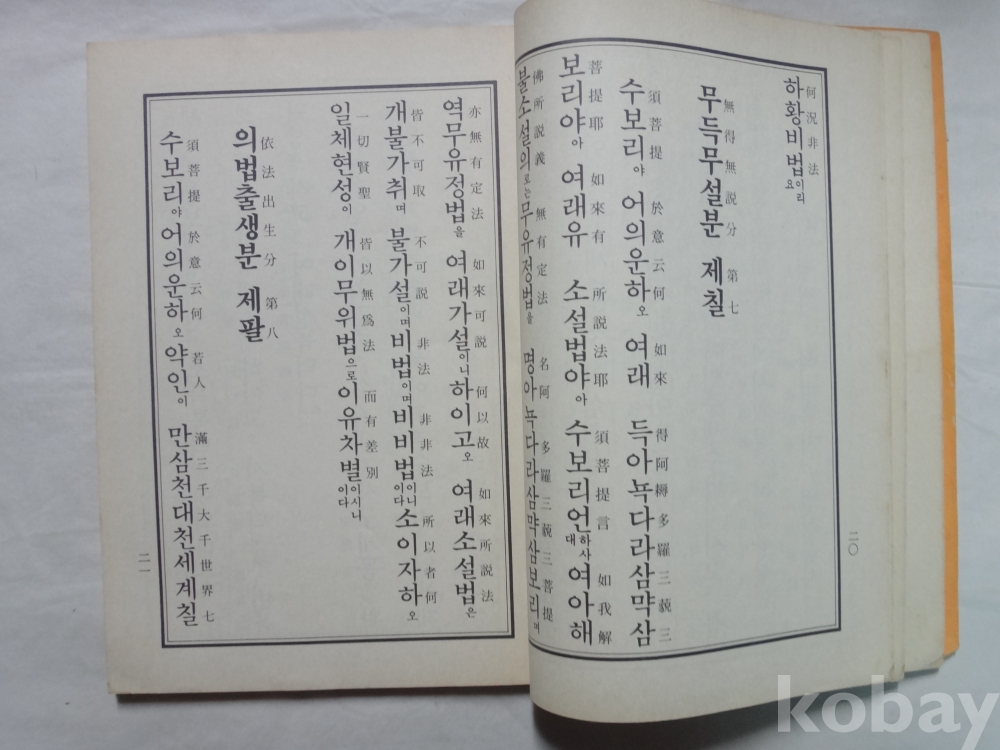 何況非法
하황비법이리요
無得無說分 第七
무득무설분 제칠
須菩提 於意云何 如來 得阿耨多羅三藐三
수보리야 어의운하오 여래 득아뇩다라삼먁삼
菩提耶 如來有 所說法耶 須菩提言 如我解
보리야아 여래유 소설법야아 수보리언하사대 여아해
佛所說義 無有定法 名阿 多羅三藐三菩提
불소설의로는 무유정법을 명아뇩다라삼먁삼보리며
二〇
亦無有定法 如來可說 何以故 如來所說法
역무유정법을 여래가설이니 하이고오 여래소설법은
皆不可取 不可說 非法 非非法 所以者何
개불가취며 불가설이며 비법이며 비비법이니이다 소이자하오
一切賢聖 皆以無爲法 而有差別
일체현성이 개이무위법으로 이유차별이시니이다
依法出生分 第八
의법출생분 제팔
須菩提 於意云何 若人 滿三千大千世界七
수보리야 어의운하오 약인이 만삼천대천세계칠
二一
kobay